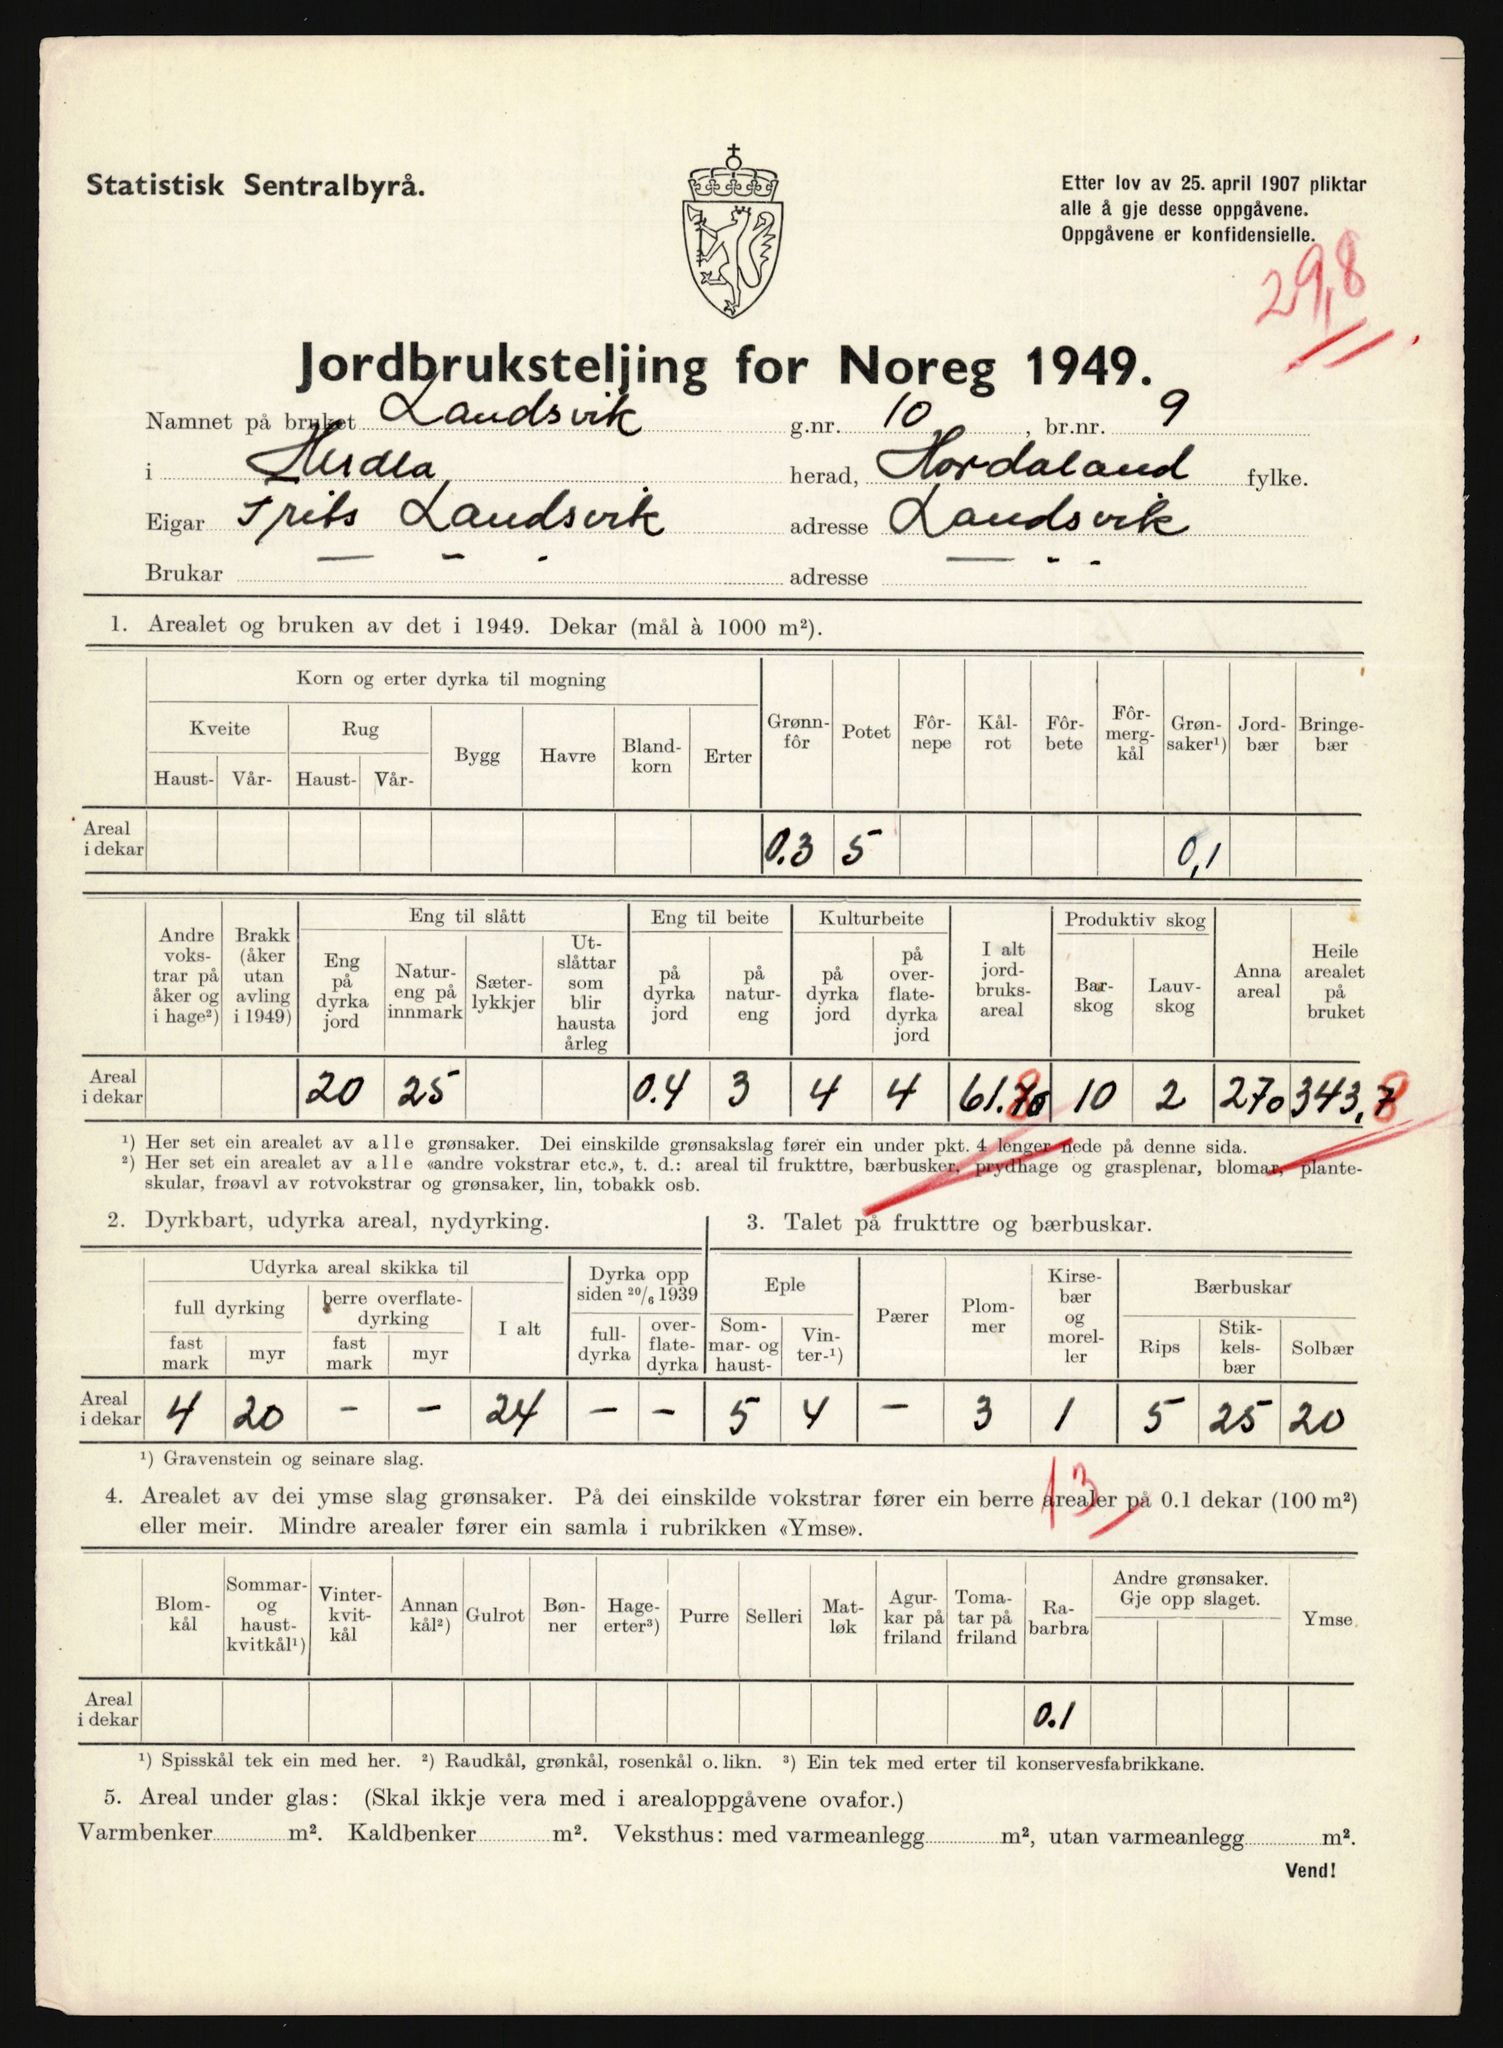 Statistisk Sentralbyrå.
Etter lov av 25. april 1907 pliktar
alle å gje desse oppgåvene.
Oppgåvene er konfidensielle.
29,8
Jordbruksteljing for Noreg 1949.
Namnet på bruket Landsvik g.nr. 10, br.nr. 9
i Herdla herad, Hordaland fylke.
Eigar Frits Landsvik adresse Landsvik
Brukar — - - adresse — - -
1. Arealet og bruken av det i 1949. Dekar (mål à 1000 m²).
Korn og erter dyrka til mogning
Kveite Rug Bygg Havre Bland-korn Erter Grønn-fôr Potet Fôr-nepe Kål-rot Fôr-bete Fôr-merg-kål Grøn-saker¹) Jord-bær Bringe-bær
Haust- Vår- Haust- Vår-
Areal i dekar 0.3 5 0,1
Andre voks-trar på åker og i hage²) Brakk (åker utan avling i 1949) Eng til slått Eng til beite Kulturbeite I alt jord-bruks-areal Produktiv skog Anna areal Heile arealet på bruket
Eng på dyrka jord Natur-eng på innmark Sæter-lykkjer Ut-slåttar som blir hausta årleg på dyrka jord på natur-eng på dyrka jord på over-flate-dyrka jord Bar-skog Lauv-skog
Areal i dekar 20 25 0.4 3 4 4 61.8 10 2 270 343,8
¹) Her set ein arealet av alle grønsaker. Dei einskilde grønsakslag fører ein under pkt. 4 lenger nede på denne sida.
²) Her set ein arealet av alle «andre vokstrar etc.», t. d.: areal til frukttre, bærbusker, prydhage og grasplenar, blomar, plante-
skular, frøavl av rotvokstrar og grønsaker, lin, tobakk osb.
2. Dyrkbart, udyrka areal, nydyrking.
3. Talet på frukttre og bærbuskar.
Udyrka areal skikka til Dyrka opp siden 20/6 1939 Eple Pærer Plom-mer Kirse-bær og morel-ler Bærbuskar
full dyrking berre overflate-dyrking I alt full-dyrka over-flate-dyrka Som-mar- og haust- Vin-ter-¹) Rips Stik-kels-bær Solbær
fast mark myr fast mark myr
Areal i dekar 4 20 - - 24 - - 5 4 - 3 1 5 25 20
¹) Gravenstein og seinare slag.
13
4. Arealet av dei ymse slag grønsaker. På dei einskilde vokstrar fører ein berre arealer på 0.1 dekar (100 m²)
eller meir. Mindre arealer fører ein samla i rubrikken «Ymse».
Blom-kål Sommar- og haust-kvitkål¹) Vinter-kvit-kål Annan kål²) Gulrot Bøn-ner Hage-erter³) Purre Selleri Mat-løk Agur-kar på friland Toma-tar på friland Ra-barbra Andre grønsaker. Gje opp slaget. Ymse
Areal i dekar 0.1
¹) Spisskål tek ein med her. ²) Raudkål, grønkål, rosenkål o. likn. ³) Ein tek med erter til konservesfabrikkane.
5. Areal under glas: (Skal ikkje vera med i arealoppgåvene ovafor.)
Varmbenker m². Kaldbenker m². Veksthus: med varmeanlegg m², utan varmeanlegg m².
Vend!